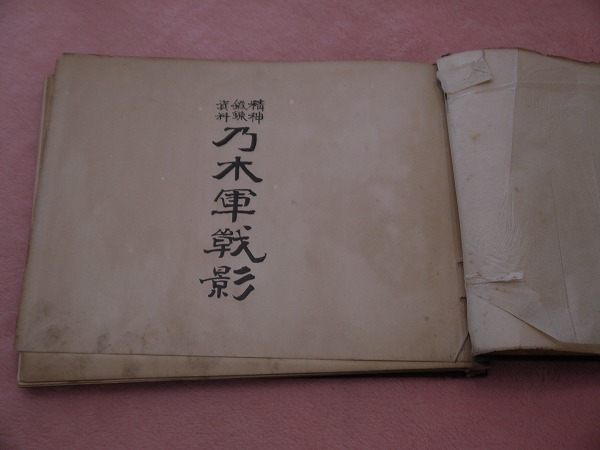 精神
鍛錬
資料
乃木軍戦影